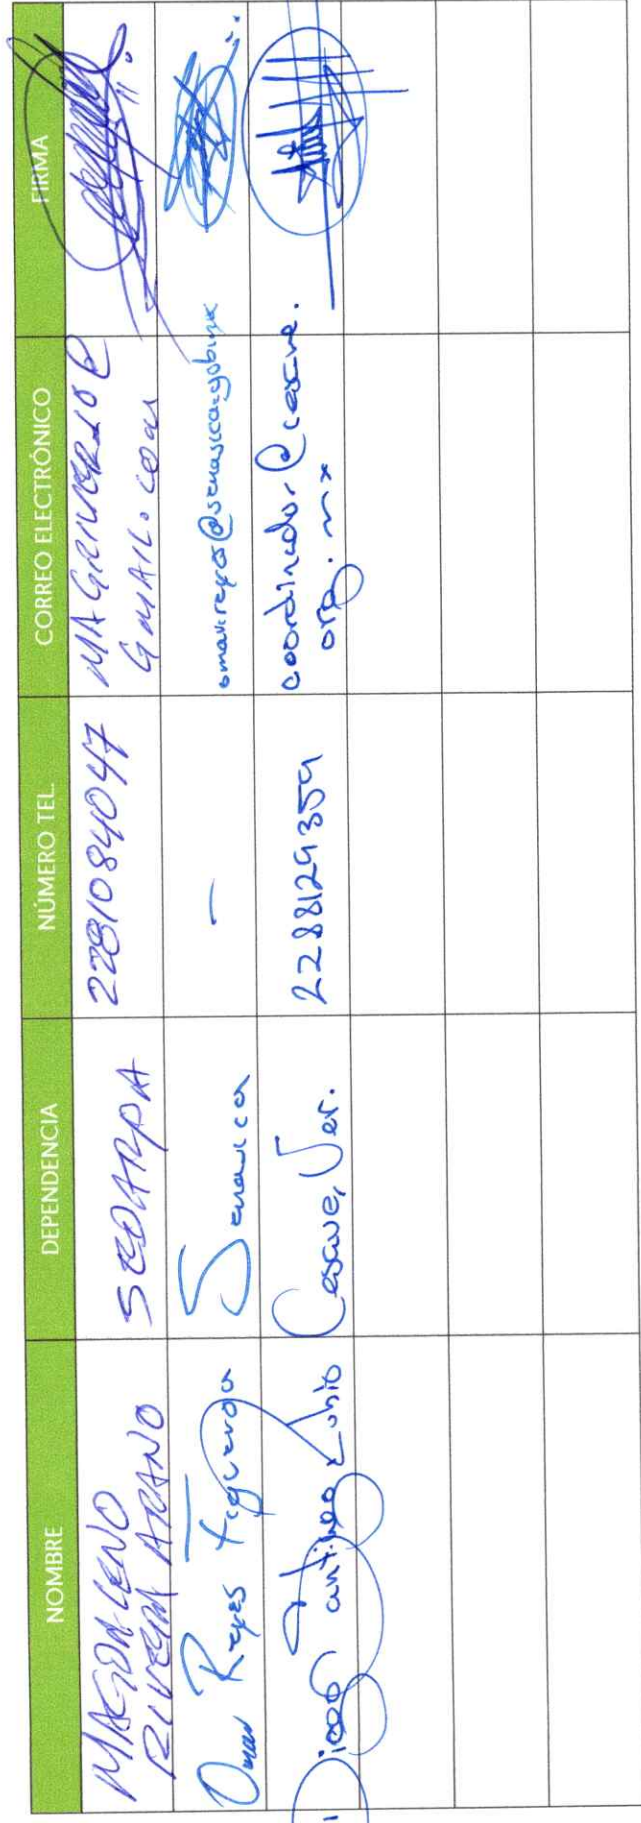 NOMBRE DEPENDENCIA NÚMERO TEL. CORREO ELECTRÓNICO FIRMA
MAGDALENO
RIVERA ARANO
SEDARPA
2281084047
GMAIL.COM
Omar Reyes Figueroa
Senasica
-
omar.reyes@senasica.gob.mx
Diego Rubio
Cesave, Ver.
2288129359
coordinador@cesave.
org.mx